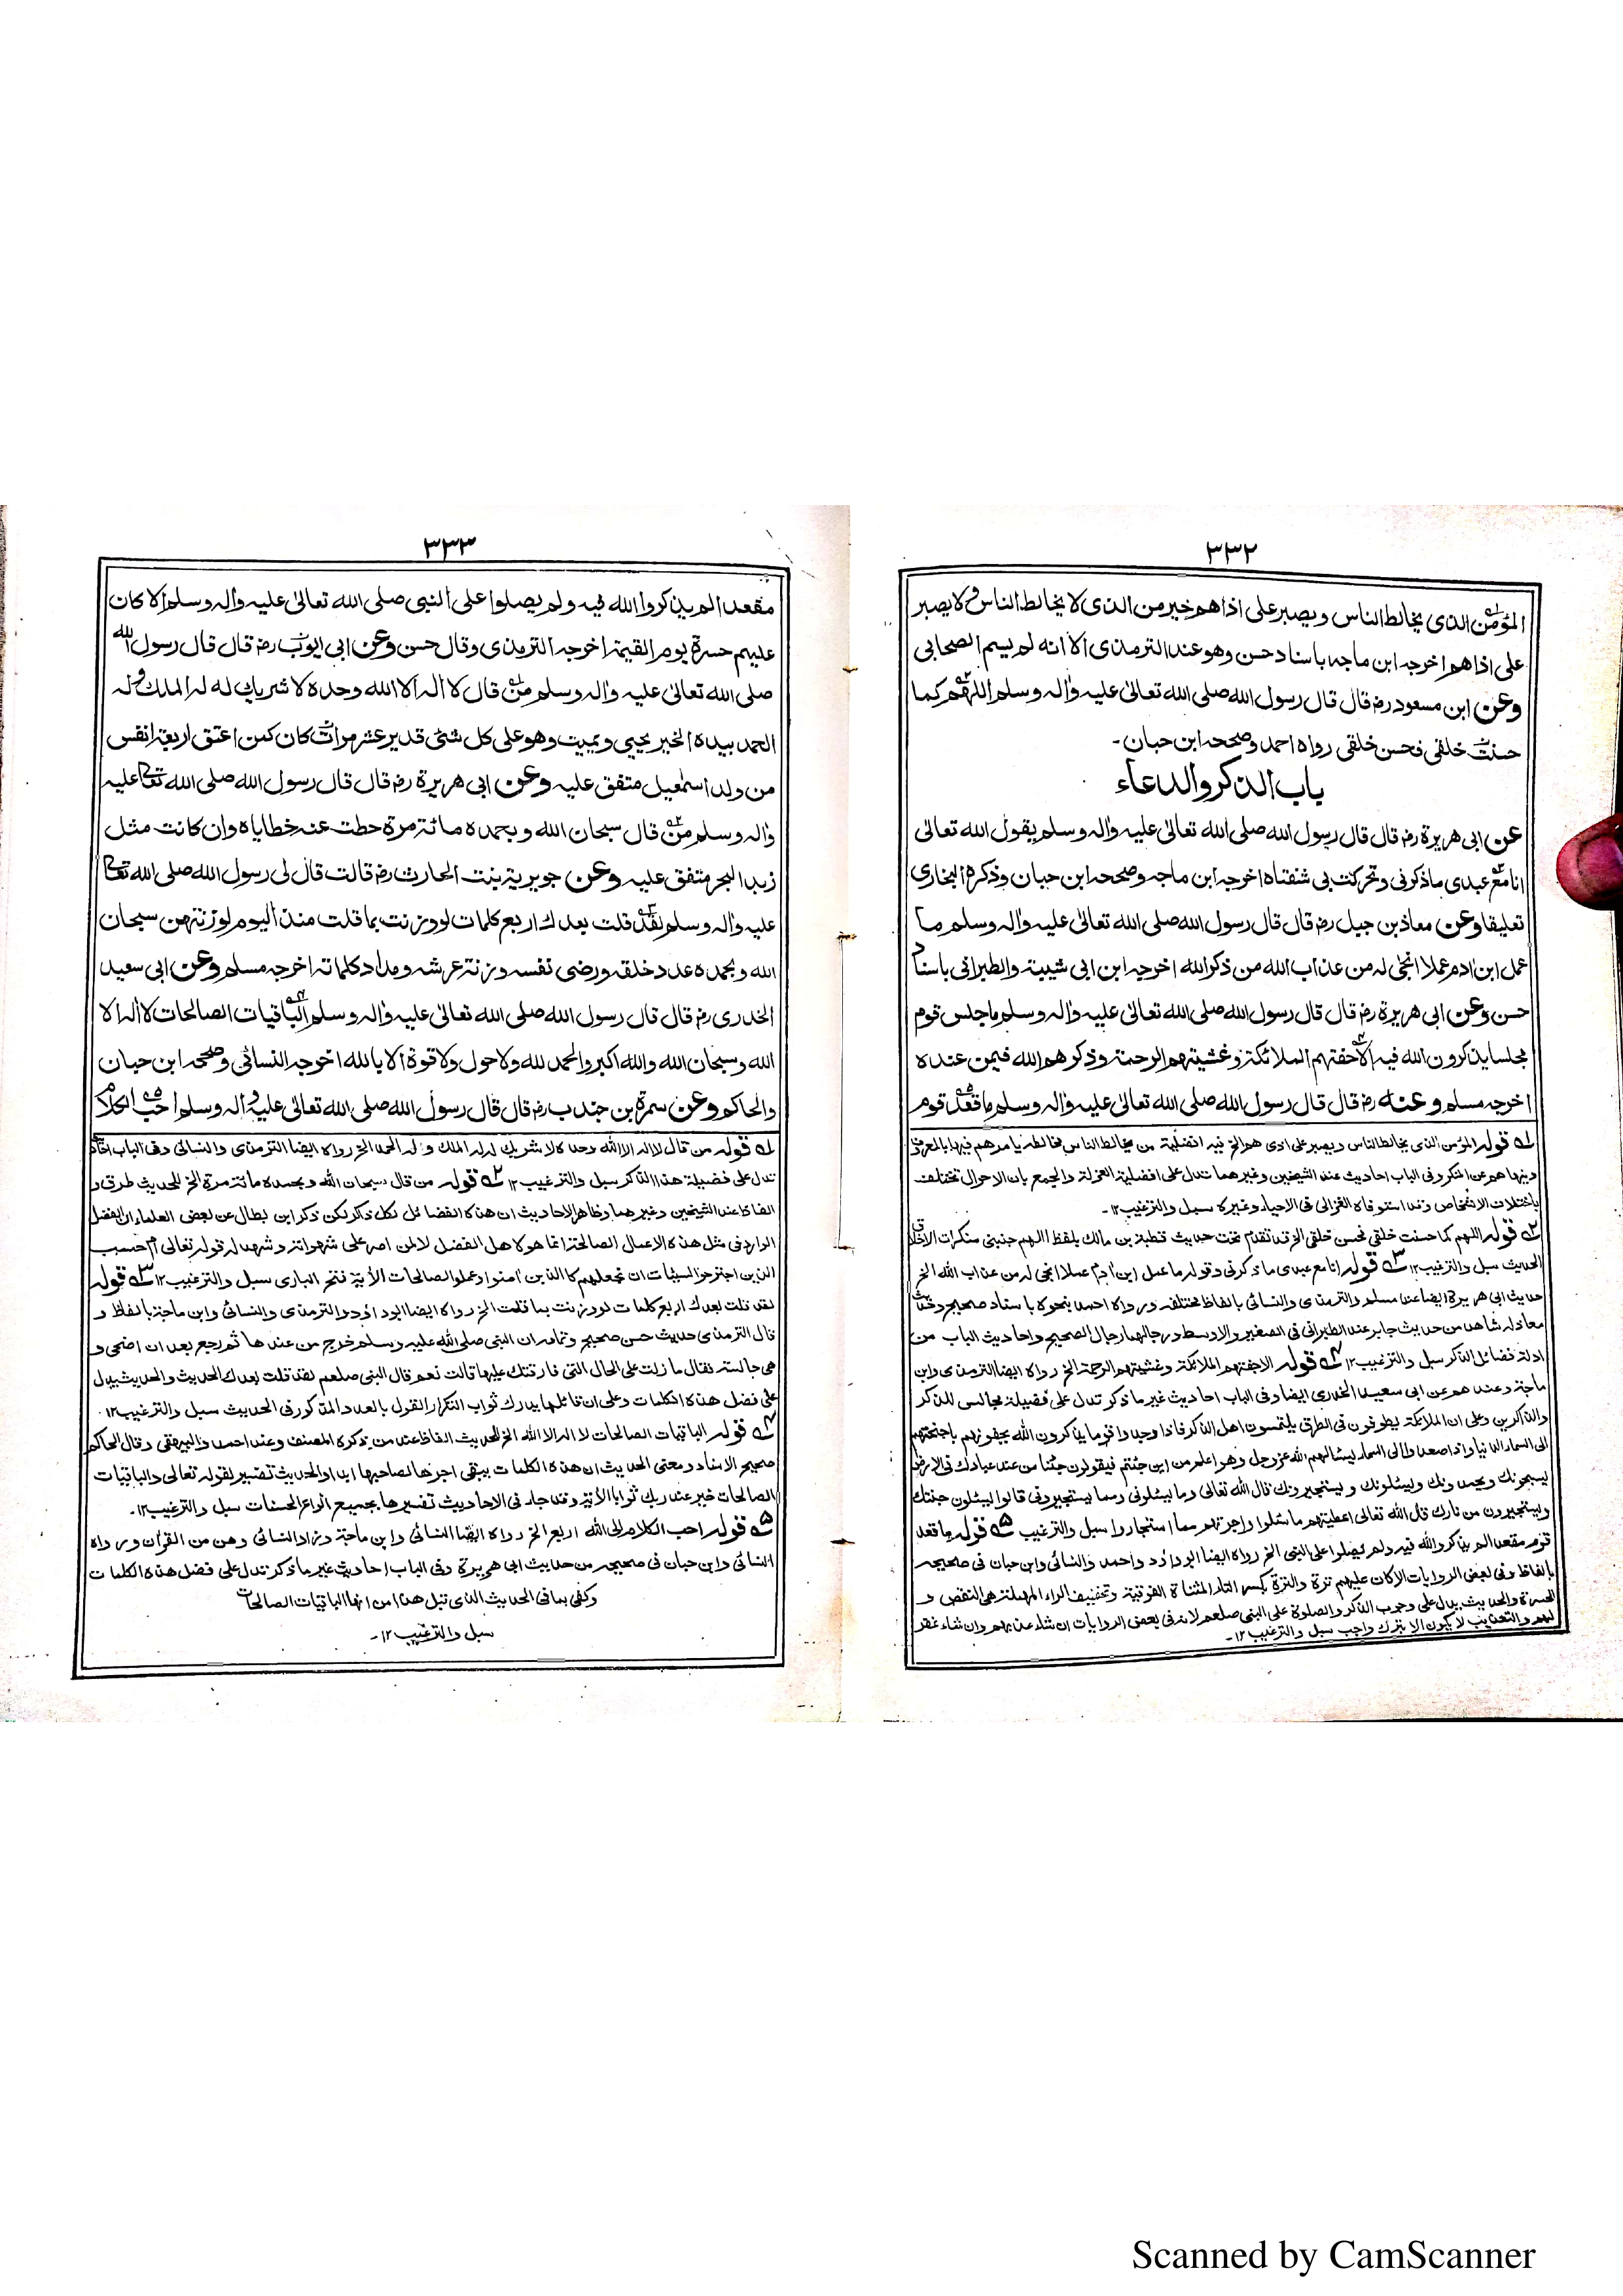 ٣٣٢
المؤمن الذى يخالط الناس ويصبر على اذاهم خير من الذى لا يخالط الناس ولا يصبر
على اذاهم اخرجه ابن ماجه باسناد حسن وهو عند الترمذى الا انه لم يسم الصحابى
وعن ابن مسعود رض قال قال رسول الله صلى الله تعالى عليه واله وسلم اللهم كما
حسنت خلقى فحسن خلقى رواه احمد وصححه ابن حبان ـ
باب الذكر والدعاء
عن ابى هريرة رض قال قال رسول الله صلى الله تعالى عليه واله وسلم يقول الله تعالى
انا مع عبدى ما ذكرنى وتحركت بى شفتاه اخرجه ابن ماجه وصححه ابن حبان وذكره البخارى
تعليقا وعن معاذ بن جبل رض قال قال رسول الله صلى الله تعالى عليه واله وسلم ما
عمل ابن ادم عملا انجى له من عذاب الله من ذكر الله اخرجه ابن ابى شيبة والطبرانى باسناد
حسن وعن ابى هريرة رض قال قال رسول الله صلى الله تعالى عليه واله وسلم ما جلس قوم
مجلسا يذكرون الله فيه الا حفتهم الملائكة وغشيتهم الرحمة وذكرهم الله فيمن عنده
اخرجه مسلم وعنه رض قال قال رسول الله صلى الله تعالى عليه واله وسلم ما قعد قوم
١ه قوله المؤمن الذى يخالط الناس ويصبر على اذى هم الخ فيه افضلية من يخالط الناس مخالطة يامرهم فيها بالمعروف
وينهاهم عن المنكر وفى الباب احاديث عند الشيخين وغيرهما تدل على افضلية العزلة والجمع بان الاحوال تختلف
باختلاف الاشخاص وقد استوفاه الغزالى فى الاحياء وغيره سبل والترغيب ١٢ ـ
٢ه قوله اللهم كما حسنت خلقى فحسن خلقى الخ قد تقدم تحت حديث قطبة بن مالك بلفظ اللهم جنبنى منكرات الاخلاق
الحديث سبل والترغيب ١٢ ٣ه قوله انا مع عبدى ما ذكرنى وقوله ما عمل ابن ادم عملا انجى له من عذاب الله الخ
حديث ابى هريرة ايضا عند مسلم والترمذى والنسائى بالفاظ مختلفه ورواه احمد بنحوه باسناد صحيح وحديث
معاذ له شاهد من حديث جابر عند الطبرانى فى الصغير والاوسط ورجالهما رجال الصحيح واحاديث الباب من
ادلة فضائل الذكر سبل والترغيب ١٢ ٤ه قوله الا حفتهم الملائكة وغشيتهم الرحمة الخ رواه ايضا الترمذى وابن
ماجة وعندهم عن ابى سعيد الخدرى ايضا وفى الباب احاديث غير ما ذكر تدل على فضيلة مجالس للذكر
والذاكرين وعلى ان الملائكة يطوفون فى الطرق يلتمسون اهل الذكر فاذا وجدوا قوما يذكرون الله يحفونهم باجنحتهم
الى السماء الدنيا واذا صعدوا الى السماء يسئالهم الله عزوجل وهو اعلم من اين جئتم فيقولون جئنا من عند عبادك فى الارض
يسبحونك ويحمدونك ويسئلونك ويستجيرونك قال الله تعالى وما يسئلونى ومما يستجيرونى قالوا يسئلون جنتك
ويستجيرون من نارك قال الله تعالى اعطيتهم ما سئلوا واجرتهم مما استجاروا سبل والترغيب ٥ه قوله ما قعد
قوم مقعدا لم يذكروا الله فيه ولم يصلوا على النبى الخ رواه ايضا ابو داؤد واحمد والنسائى وابن حبان فى صحيحه
بالفاظ وفى بعض الروايات الا كان عليهم ترة والترة بكسر التاء المثناة الفوقية وتخفيف الراء المهملة هى النقص و
الحسرة والحديث يدل على وجوب الذكر والصلوة على النبى صلعم لانه فى بعض الروايات ان شاء عذبهم وان شاء غفر
لهم والتعذيب لا يكون الا بترك واجب سبل والترغيب ١٢ ـ
٣٣٣
مقعدا لم يذكروا الله فيه ولم يصلوا على النبى صلى الله تعالى عليه واله وسلم الا كان
عليهم حسرة يوم القيمة اخرجه الترمذى وقال حسن وعن ابى ايوب رض قال قال رسول الله
صلى الله تعالى عليه واله وسلم من قال لا اله الا الله وحده لا شريك له له الملك وله
الحمد بيده الخير يحيى ويميت وهو على كل شئى قدير عشر مرات كان كمن اعتق اربعة انفس
من ولد اسمعيل متفق عليه وعن ابى هريرة رض قال قال رسول الله صلى الله تعالى عليه
واله وسلم من قال سبحان الله وبحمده مائة مرة حطت عنه خطاياه وان كانت مثل
زبد البحر متفق عليه وعن جويرية بنت الحارث رض قالت قال لى رسول الله صلى الله تعالى
عليه واله وسلم لقد قلت بعدك اربع كلمات لو وزنت بما قلت منذ اليوم لوزنتهن سبحان
الله وبحمده عدد خلقه ورضى نفسه وزنة عرشه ومداد كلماته اخرجه مسلم وعن ابى سعيد
الخدرى رض قال قال رسول الله صلى الله تعالى عليه واله وسلم الباقيات الصالحات لا اله الا
الله وسبحان الله والله اكبر والحمد لله ولا حول ولا قوة الا بالله اخرجه النسائى وصححه ابن حبان
والحاكم وعن سمرة بن جندب رض قال قال رسول الله صلى الله تعالى عليه واله وسلم احب الكلام
١ه قوله من قال لا اله الا الله وحده لا شريك له له الملك وله الحمد الخ رواه ايضا الترمذى والنسائى وفى الباب احاديث
تدل على فضيلة هذا الذكر سبل والترغيب ١٢ ٢ه قوله من قال سبحان الله وبحمده مائة مرة الخ للحديث طرق و
الفاظ عند الشيخين وغيرهما وظاهر الاحاديث ان هذه الفضائل لكل ذاكر لكن ذكر ابن بطال عن بعض العلماء ان الفضل
الوارد فى مثل هذه الاعمال الصالحة انما هو لاهل الفضل لا لمن اصر على شهواته وشهد له قوله تعالى ام حسب
الذين اجترحوا السيئات ان نجعلهم كالذين امنوا وعملوا الصالحات الأية فتح البارى سبل والترغيب ١٢ ٣ه قوله
لقد قلت بعدك اربع كلمات لو وزنت بما قلت الخ رواه ايضا ابو داؤد والترمذى والنسائى وابن ماجة بالفاظ و
قال الترمذى حديث حسن صحيح وتمامه ان النبى صلى الله عليه وسلم خرج من عندها ثم رجع بعد ان اضحى و
هى جالسة فقال ما زلت على الحال التى فارقتك عليها قالت نعم قال النبى صلعم لقد قلت بعدك الحديث والحديث يدل
على فضل هذه الكلمات وعلى ان قائلها يدرك ثواب التكرار القول بالعدد المذكور فى الحديث سبل والترغيب ١٢ ـ
٤ه قوله الباقيات الصالحات لا اله الا الله الخ للحديث الفاظ عند من ذكره المصنف وعند احمد والبيهقى وقال الحاكم
صحيح الاسناد ومعنى الحديث ان هذه الكلمات يبقى اجرها لصاحبها ابدا والحديث تفسير لقوله تعالى والباقيات
الصالحات خير عند ربك ثوابا الأية وقد جاء فى الاحاديث تفسيرها بجميع انواع الحسنات سبل والترغيب ١٢ ـ
٥ه قوله احب الكلام الى الله اربع الخ رواه ايضا النسائى وابن ماجة وزاد النسائى وهن من القرأن ورواه
النسائى وابن حبان فى صحيحه من حديث ابى هريرة وفى الباب احاديث غير ما ذكر تدل على فضل هذه الكلمات
وكفى بما فى الحديث الذى قبل هذا من انها الباقيات الصالحات
سبل والترغيب ١٢ ـ
Scanned by CamScanner